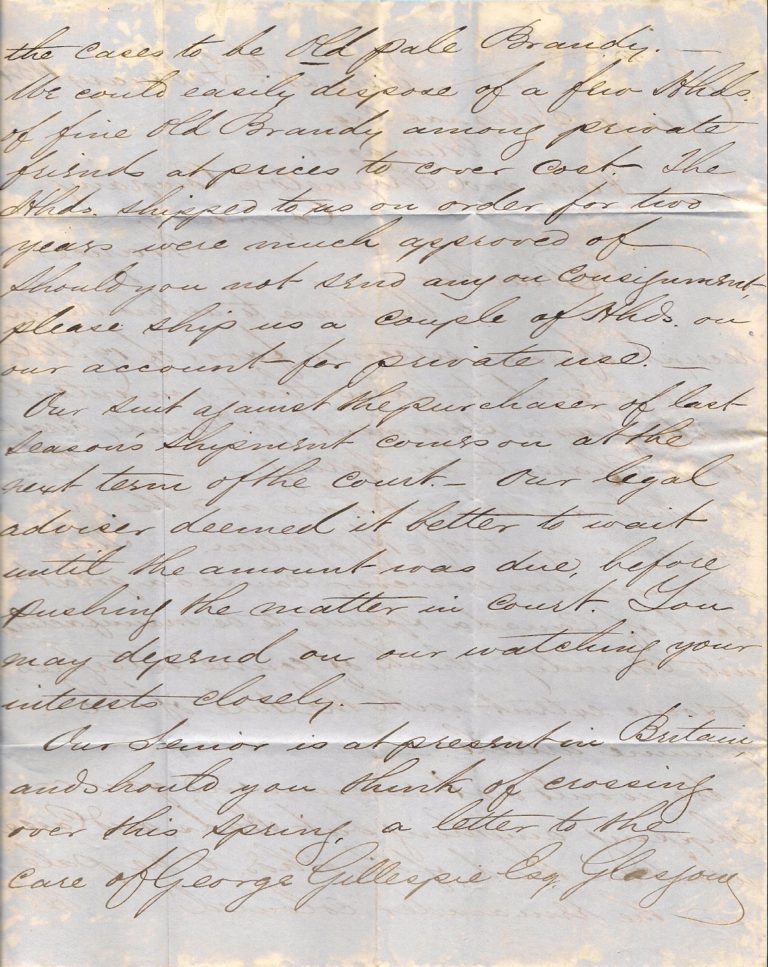 the cases to be Old pale Brandy. —
We could easily dispose of a few Hhds.
of fine Old Brandy among private
friends at prices to cover cost. The
Hhds. shipped to us on order for two
years were much approved of —
Should you not send any on consignment,
please ship us a couple of Hhds. on
our account for private use. —
Our suit against the purchaser of last
season's shipment comes on at the
next term of the court — Our legal
adviser deemed it better to wait
until the amount was due, before
pushing the matter in court. You
may depend on our watching your
interests closely. —
Our Senior is at present in Britain,
and should you think of crossing
over this spring, a letter to the
care of George Gillespie Esq. Glasgow